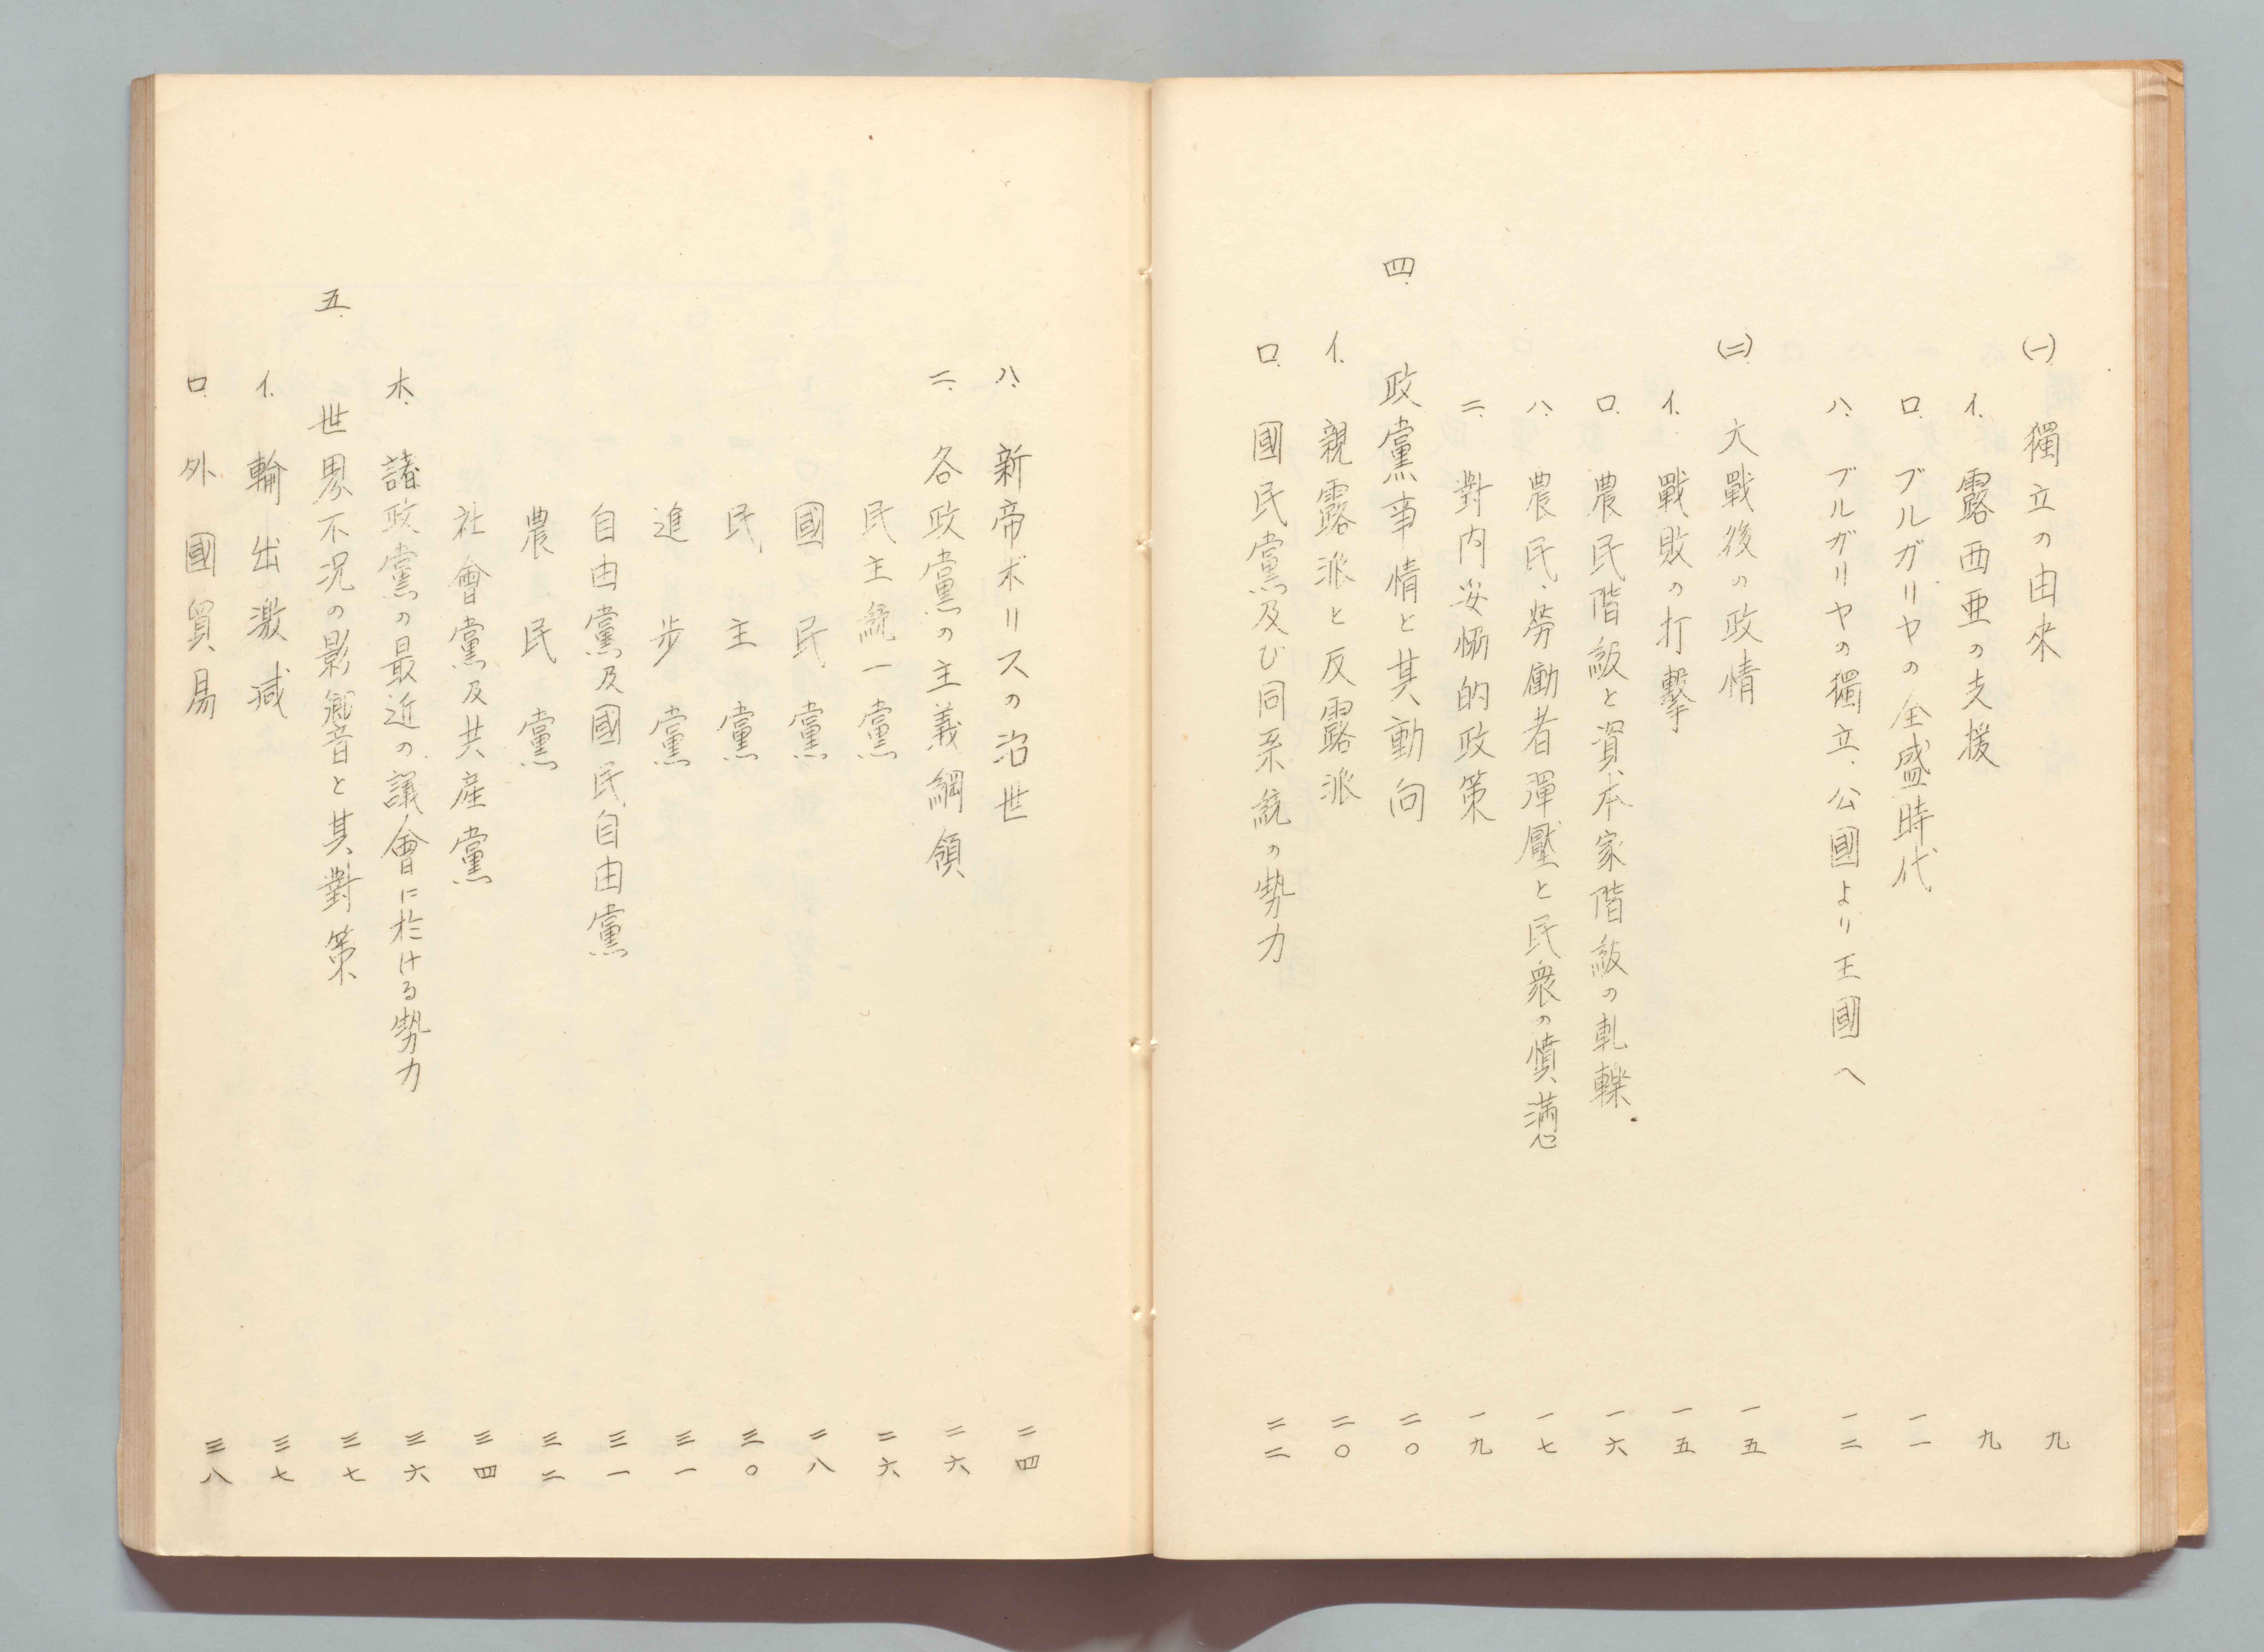 (一) 獨立の由來 九
イ. 露西亜の支援 九
ロ. ブルガリヤの全盛時代 一一
ハ. ブルガリヤの獨立、公國より王國へ 一二
(二) 大戰後の政情 一五
イ. 戰敗の打擊 一五
ロ. 農民階級と資本家階級の軋轢. 一六
ハ. 農民、勞働者彈壓と民衆の憤懣 一七
ニ. 對内妥協的政策 一九
四. 政黨事情と其動向 二〇
イ. 親露派と反露派 二〇
ロ. 國民黨及び同系統の勢力 二二
ハ. 新帝ボリスの治世 二四
ニ. 各政黨の主義綱領 二六
民主統一黨 二六
國民黨 二八
民主黨 三〇
進步黨 三一
自由黨及國民自由黨 三一
農民黨 三二
社會黨及共産黨 三四
ホ. 諸政黨の最近の議會に於ける勢力 三六
五. 世界不況の影響と其對策 三七
イ. 輸出激减 三七
ロ. 外國貿易 三八